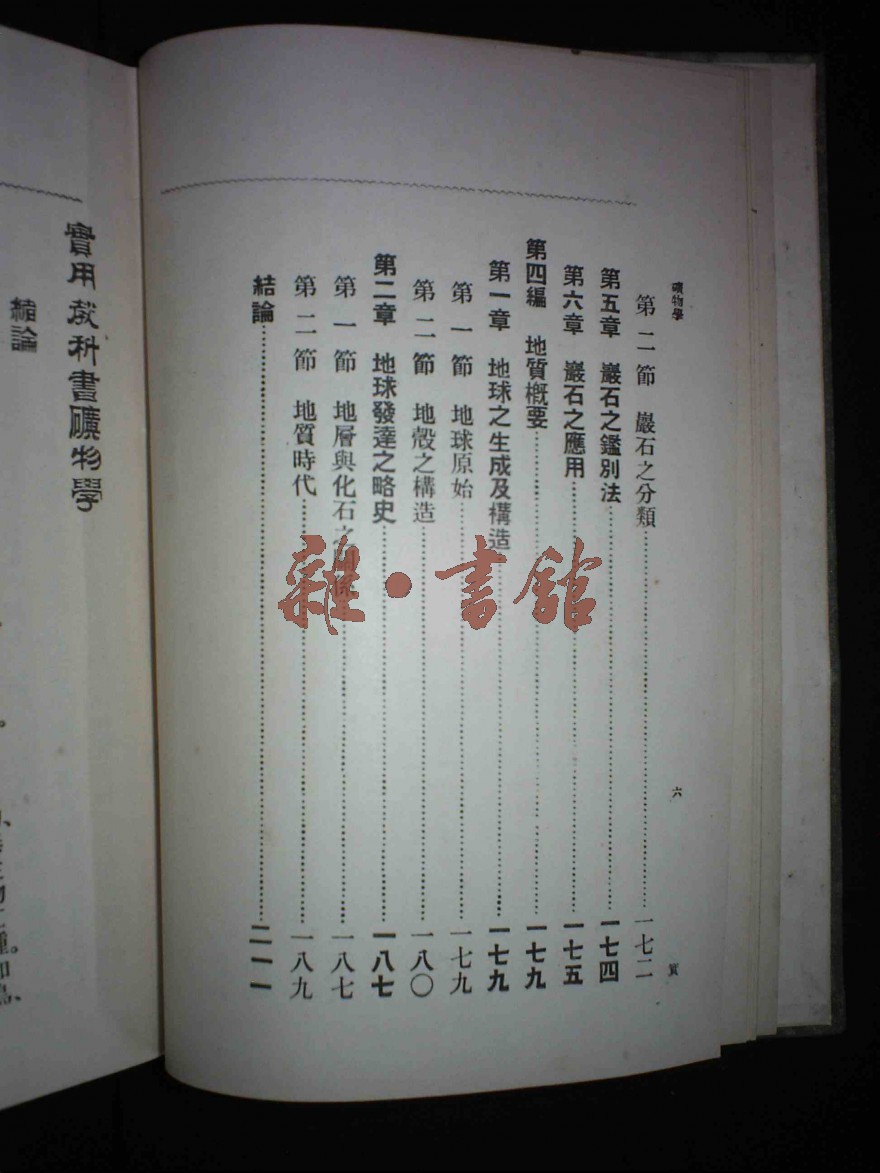 礦物學
六
第二節 巖石之分類 一七二
第五章 巖石之鑑別法 一七四
第六章 巖石之應用 一七五
第四編 地質概要 一七九
第一章 地球之生成及構造 一七九
第一節 地球原始 一七九
第二節 地殼之構造 一八〇
第二章 地球發達之略史 一八七
第一節 地層與化石之關係 一八七
第二節 地質時代 一八九
結論 二一一
實用教科書礦物學
緒論
雜·書館